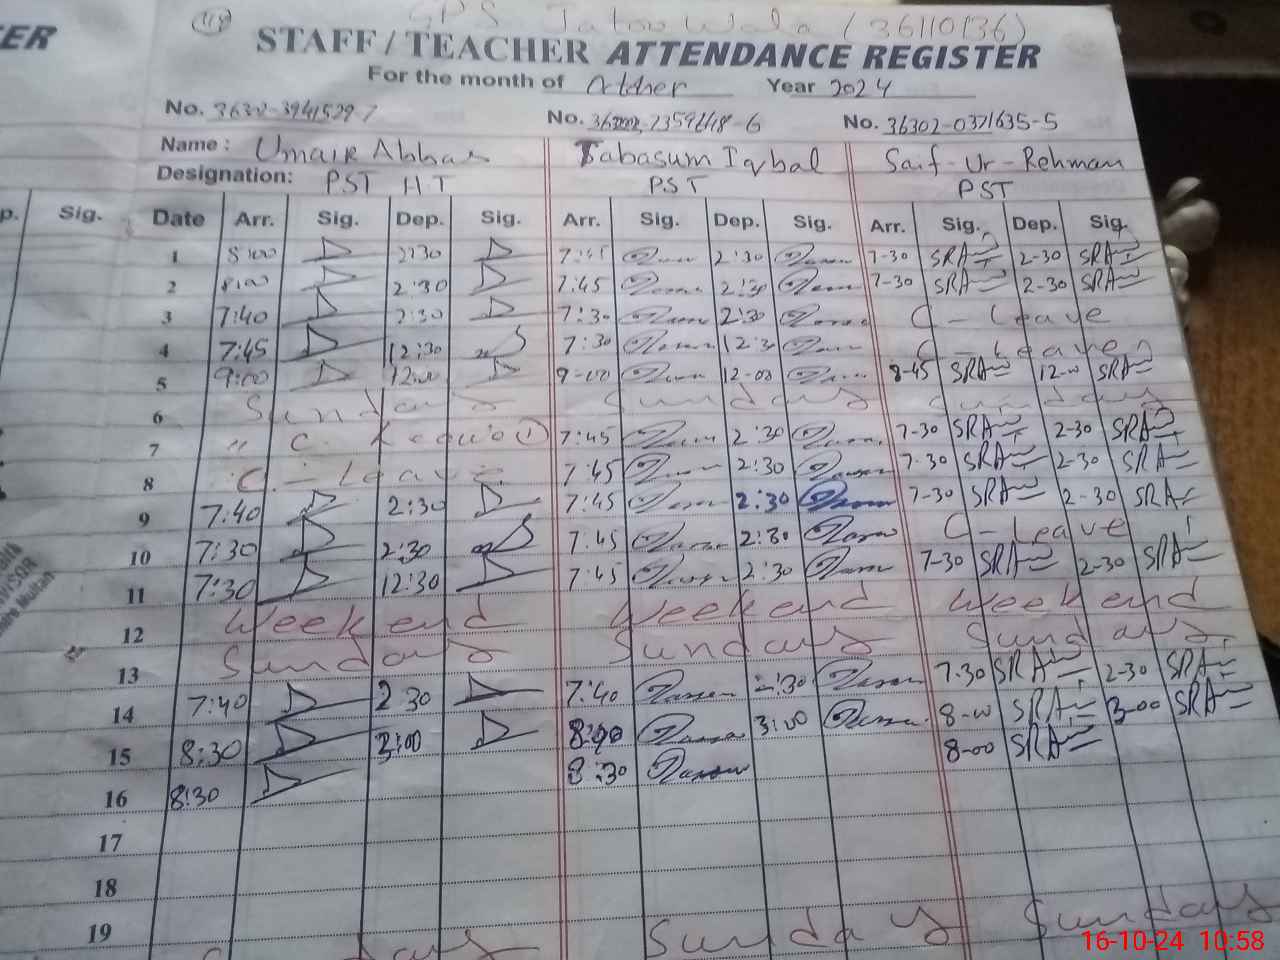 ER
GPS Jatoo Wala (36110136)
STAFF / TEACHER ATTENDANCE REGISTER
For the month of October Year 2024
No. No. No. 36302-0371635-5
Name : Umair Abbas Tabasum Iqbal Saif-Ur-Rehman
Designation: PST HT PST PST
p. Sig. Date Arr. Sig. Dep. Sig. Arr. Sig. Dep. Sig. Arr. Sig. Dep. Sig.
1 8:00 2:30 7:45 2:30 7-30 SRA 2-30 SRA
2 8:00 2:30 7:45 2:30 7-30 SRA 2-30 SRA
3 7:40 2:30 7:30 2:30 C - Leave
4 7:45 12:30 7:30 12:30 C - Leave
5 9:00 12:00 9-00 12-00 8-45 SRA 12-00 SRA
6 Sunday Sunday Sunday
7 " C. Leave 1 7:45 2:30 7-30 SRA 2-30 SRA
8 C - Leave 7:45 2:30 7-30 SRA 2-30 SRA
9 7:40 2:30 7:45 2:30 7-30 SRA 2-30 SRA
10 7:30 2:30 7:45 2:30 C - Leave
11 7:30 12:30 7:45 2:30 7-30 SRA 2-30 SRA
12 Weekend Weekend Weekend
13 Sunday Sunday Sunday
14 7:40 2:30 7:40 2:30 7.30 SRA 2-30 SRA
15 8:30 3:00 8:00 3:00 8-00 SRA 3-00 SRA
16 8:30 8:30 8-00 SRA
17
18
19 Sunday Sunday
16-10-24 10:58